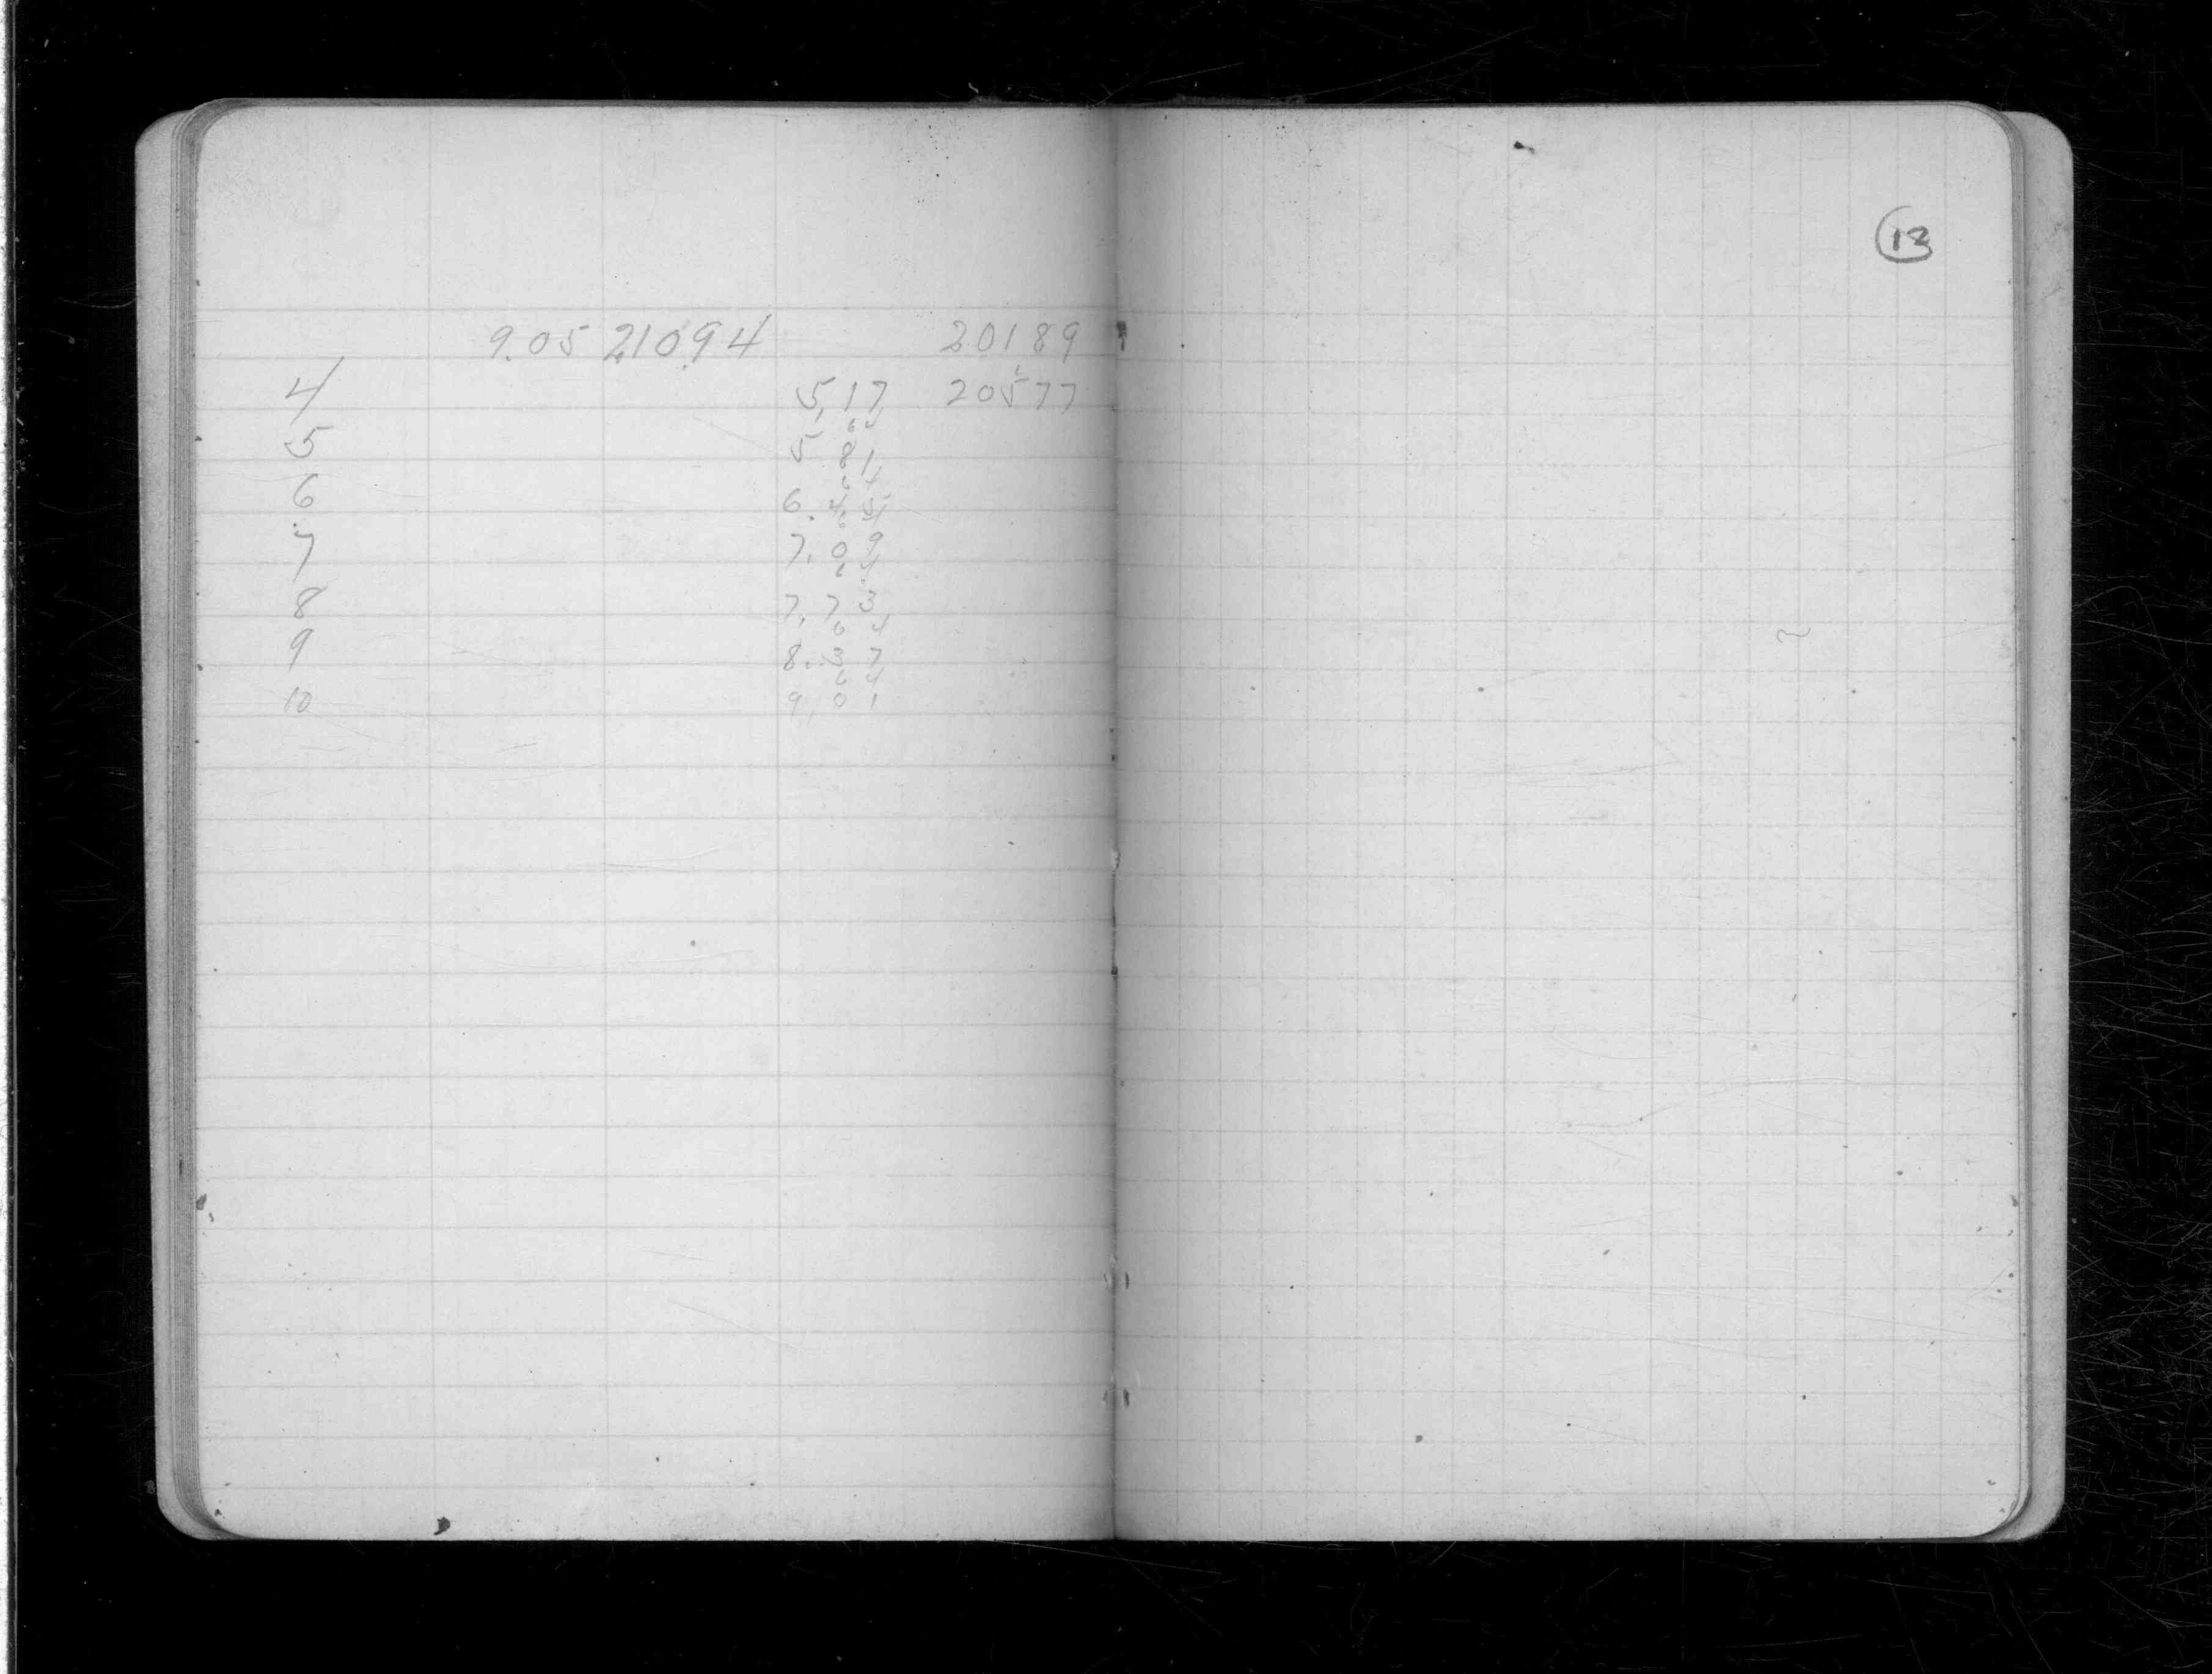 9.05 210.94 20189
4 5,17 20577
64
5 5.81
64
6 6.45
64
7 7.09
64
8 7.73
64
9 8.37
64
10 9.01
13